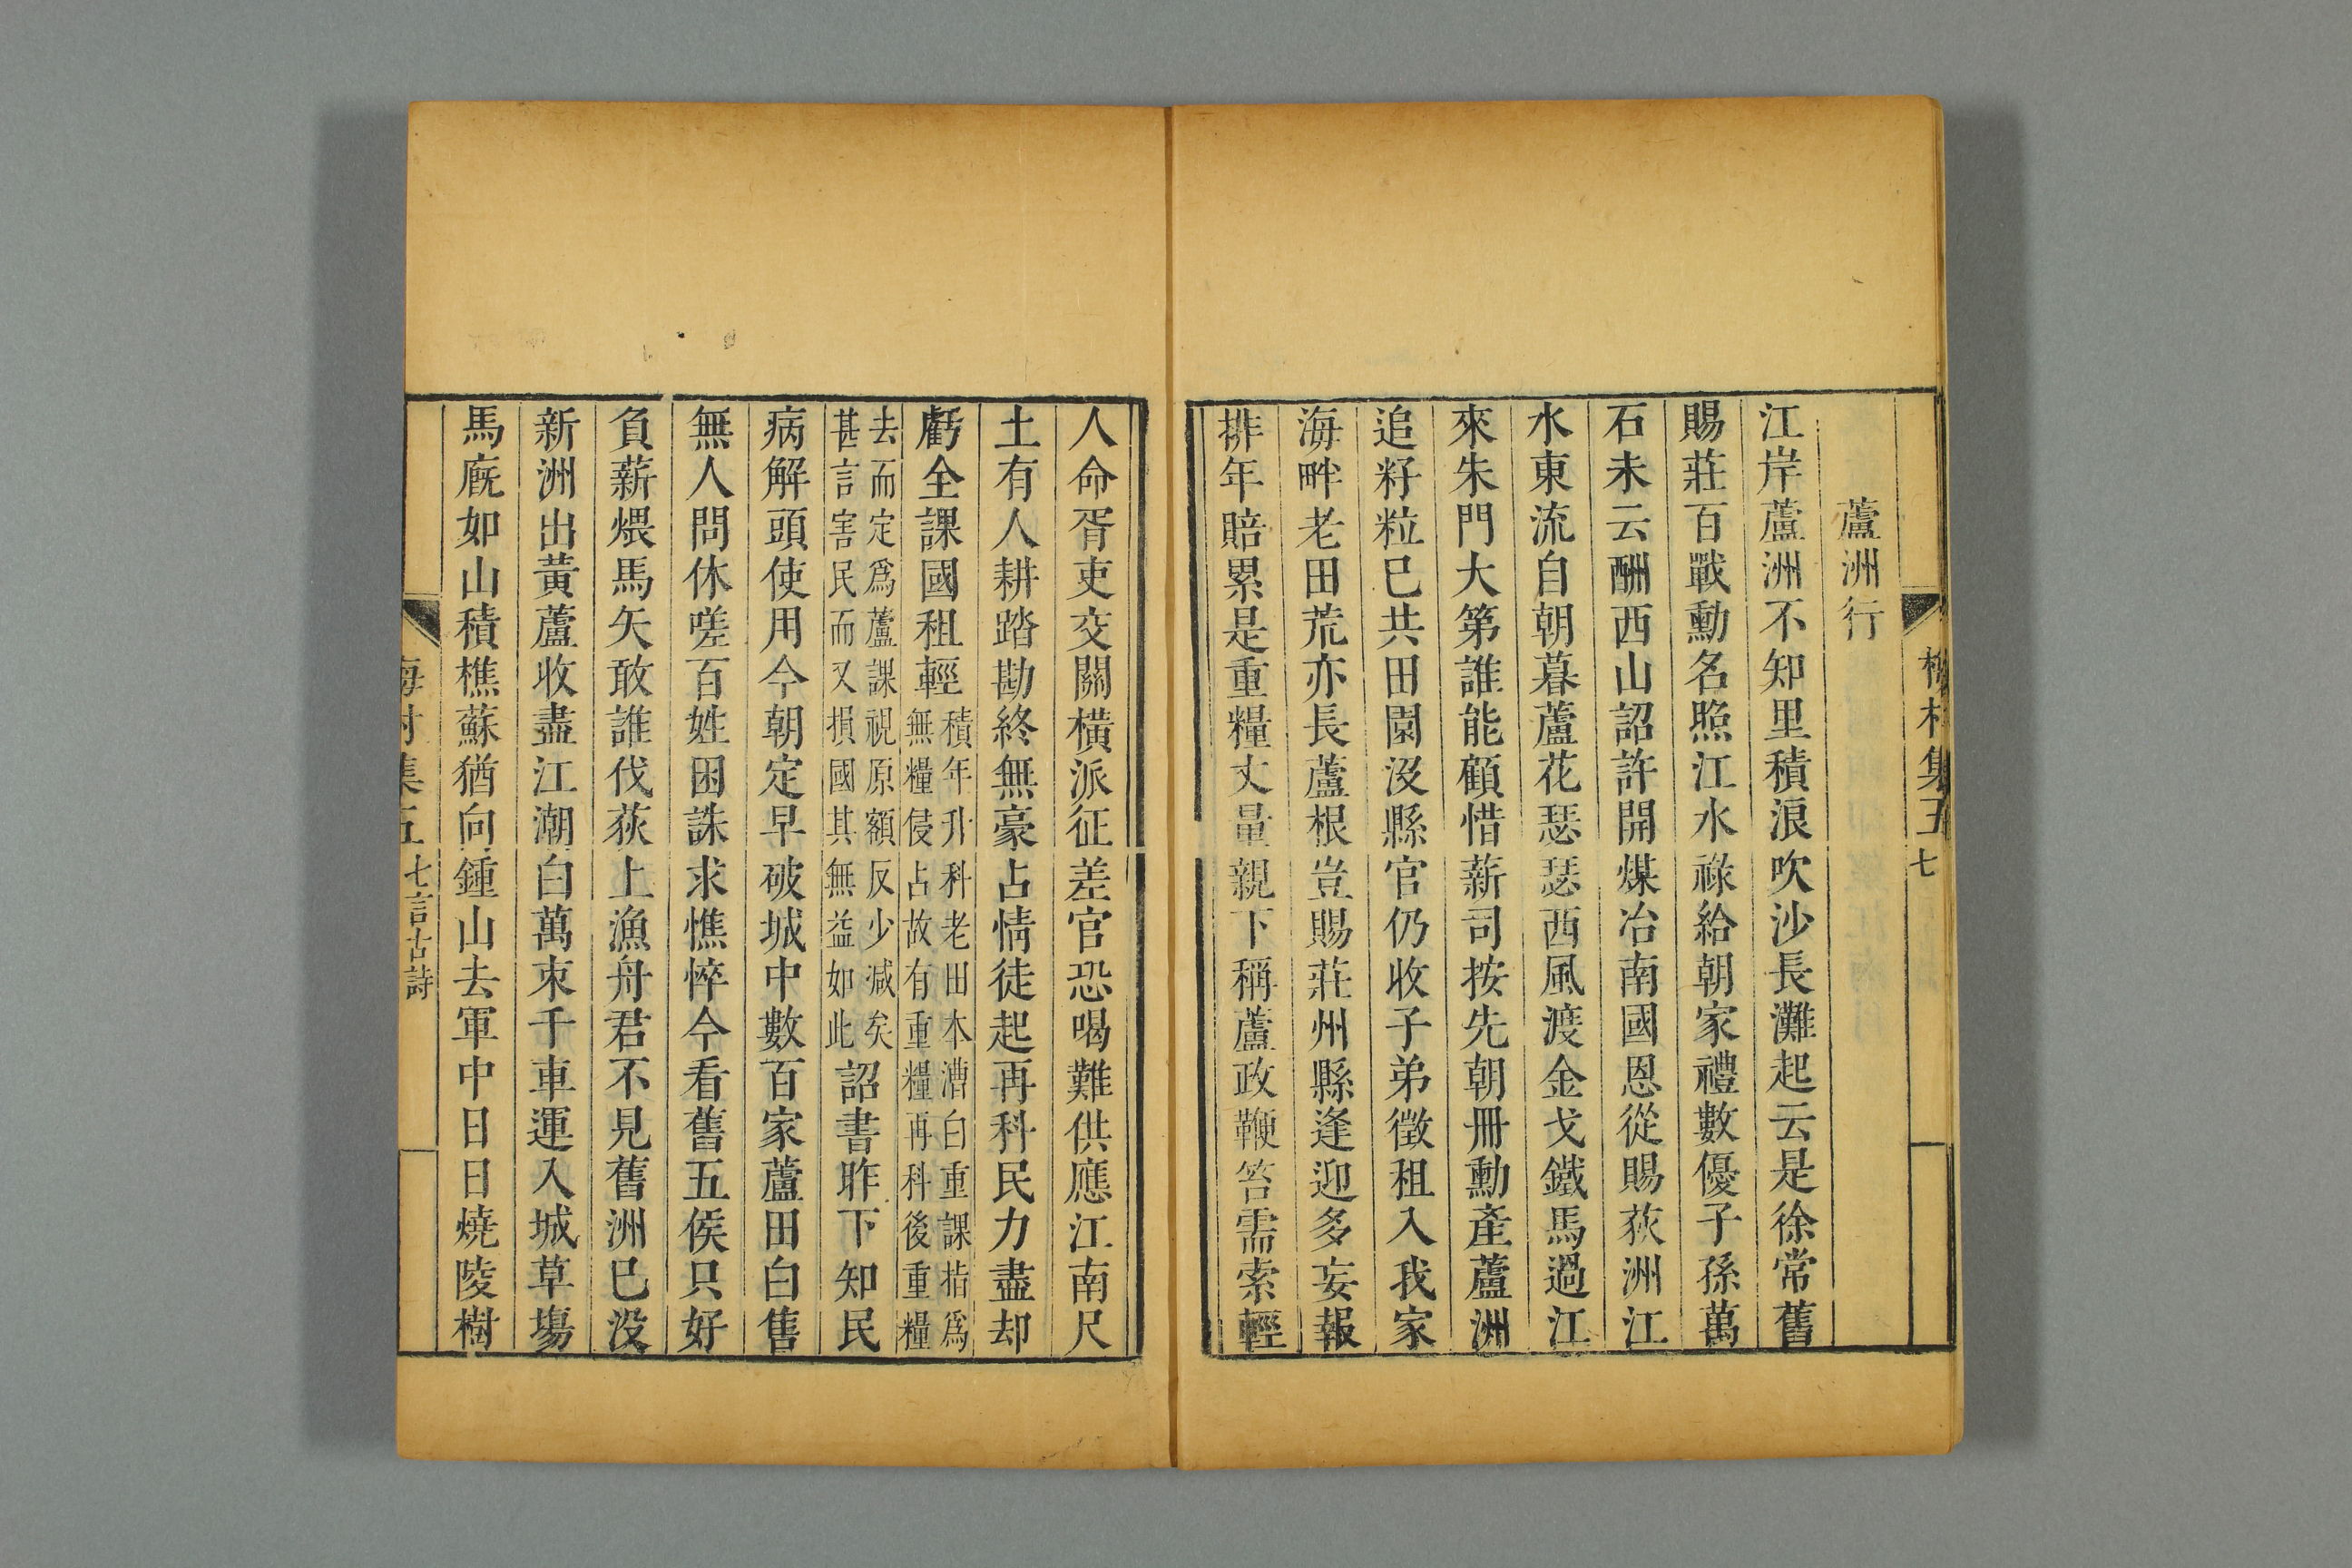 蘆洲行
江岸蘆洲不知里積浪吹沙長灘起云是徐常舊
賜莊百戰勳名照江水祿給朝家禮數優子孫萬
石未云酬西山詔許開煤冶南國恩從賜荻洲江
水東流自朝暮蘆花瑟瑟西風渡金戈鐵馬過江
來朱門大第誰能顧惜薪司按先朝冊勳產蘆洲
追籽粒已共田園沒縣官仍收子弟徵租入我家
海畔老田荒亦長蘆根豈賜莊州縣逢迎多妄報
排年賠累是重糧丈量親下稱蘆政鞭笞需索輕
人命胥吏交關橫派征差官恐喝難供應江南尺
土有人耕踏勘終無豪占情徒起再科民力盡却
虧全課國租輕積年升科老田本漕白重課指爲
無糧侵占故有重糧再科後重糧
去而定爲蘆課視原額反少減矣
甚言害民而又損國其無益如此詔書昨下知民
病解頭使用今朝定早破城中數百家蘆田白售
無人問休嗟百姓困誅求憔悴今看舊五侯只好
負薪煨馬矢敢誰伐荻上漁舟君不見舊洲已沒
新洲出黃蘆收盡江潮白萬束千車運入城草場
馬廐如山積樵蘇猶向鍾山去軍中日日燒陵樹
集五 七言古詩